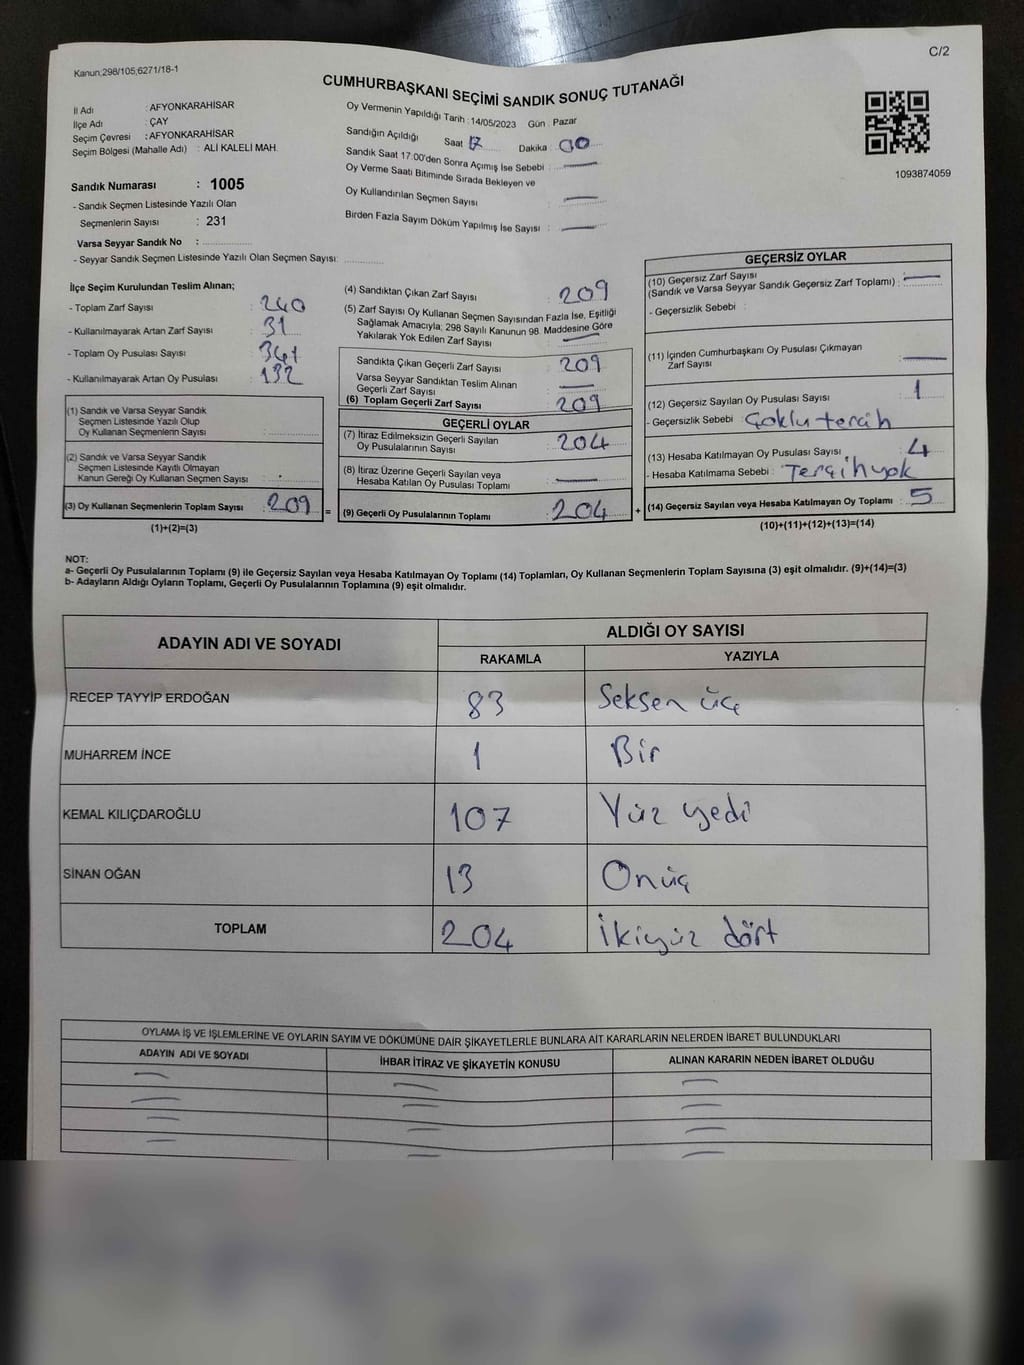 C/2
Kanun;298/105;6271/18-1
CUMHURBAŞKANI SEÇİMİ SANDIK SONUÇ TUTANAĞI
İl Adı : AFYONKARAHİSAR
İlçe Adı : ÇAY
Seçim Çevresi : AFYONKARAHİSAR
Seçim Bölgesi (Mahalle Adı) : ALİ KALELİ MAH.
Oy Vermenin Yapıldığı Tarih : 14/05/2023 Gün : Pazar
Sandığın Açıldığı Saat 17 Dakika : 00
Sandık Saat 17:00'den Sonra Açımış İse Sebebi : —
Oy Verme Saati Bitiminde Sırada Bekleyen ve
Oy Kullandırılan Seçmen Sayısı : —
Birden Fazla Sayım Döküm Yapılmış İse Sayısı : —
1093874059
Sandık Numarası : 1005
- Sandık Seçmen Listesinde Yazılı Olan
Seçmenlerin Sayısı : 231
Varsa Seyyar Sandık No :
- Seyyar Sandık Seçmen Listesinde Yazılı Olan Seçmen Sayısı:
İlçe Seçim Kurulundan Teslim Alınan;
- Toplam Zarf Sayısı : 240
- Kullanılmayarak Artan Zarf Sayısı : 31
- Toplam Oy Pusulası Sayısı : 341
- Kullanılmayarak Artan Oy Pusulası : 132
(1) Sandık ve Varsa Seyyar Sandık
Seçmen Listesinde Yazılı Olup
Oy Kullanan Seçmenlerin Sayısı :
(2) Sandık ve Varsa Seyyar Sandık
Seçmen Listesinde Kayıtlı Olmayan
Kanun Gereği Oy Kullanan Seçmen Sayısı :
(3) Oy Kullanan Seçmenlerin Toplam Sayısı : 209 =
(1)+(2)=(3)
(4) Sandıktan Çıkan Zarf Sayısı : 209
(5) Zarf Sayısı Oy Kullanan Seçmen Sayısından Fazla İse, Eşitliği
Sağlamak Amacıyla; 298 Sayılı Kanunun 98. Maddesine Göre
Yakılarak Yok Edilen Zarf Sayısı : —
Sandıkta Çıkan Geçerli Zarf Sayısı : 209
Varsa Seyyar Sandıktan Teslim Alınan
Geçerli Zarf Sayısı : —
(6) Toplam Geçerli Zarf Sayısı : 209
GEÇERLİ OYLAR
(7) İtiraz Edilmeksizin Geçerli Sayılan
Oy Pusulalarının Sayısı : 204
(8) İtiraz Üzerine Geçerli Sayılan veya
Hesaba Katılan Oy Pusulası Toplamı : —
(9) Geçerli Oy Pusulalarının Toplamı : 204 +
GEÇERSİZ OYLAR
(10) Geçersiz Zarf Sayısı
(Sandık ve Varsa Seyyar Sandık Geçersiz Zarf Toplamı) : —
- Geçersizlik Sebebi :
(11) İçinden Cumhurbaşkanı Oy Pusulası Çıkmayan
Zarf Sayısı : —
(12) Geçersiz Sayılan Oy Pusulası Sayısı : 1
- Geçersizlik Sebebi : Çoklu tercih
(13) Hesaba Katılmayan Oy Pusulası Sayısı : 4
- Hesaba Katılmama Sebebi : Tercih yok
(14) Geçersiz Sayılan veya Hesaba Katılmayan Oy Toplamı : 5
(10)+(11)+(12)+(13)=(14)
NOT:
a- Geçerli Oy Pusulalarının Toplamı (9) ile Geçersiz Sayılan veya Hesaba Katılmayan Oy Toplamı (14) Toplamları, Oy Kullanan Seçmenlerin Toplam Sayısına (3) eşit olmalıdır. (9)+(14)=(3)
b- Adayların Aldığı Oyların Toplamı, Geçerli Oy Pusulalarının Toplamına (9) eşit olmalıdır.
ADAYIN ADI VE SOYADI ALDIĞI OY SAYISI
RAKAMLA YAZIYLA
RECEP TAYYİP ERDOĞAN 83 Seksen üç
MUHARREM İNCE 1 Bir
KEMAL KILIÇDAROĞLU 107 Yüz yedi
SİNAN OĞAN 13 Onüç
TOPLAM 204 İkiyüz dört
OYLAMA İŞ VE İŞLEMLERİNE VE OYLARIN SAYIM VE DÖKÜMÜNE DAİR ŞİKAYETLERLE BUNLARA AİT KARARLARIN NELERDEN İBARET BULUNDUKLARI
ADAYIN ADI VE SOYADI İHBAR İTİRAZ VE ŞİKAYETİN KONUSU ALINAN KARARIN NEDEN İBARET OLDUĞU